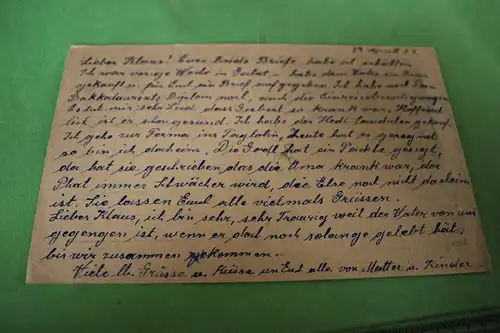 Lieber Klaus! Eure beide Briefe habe ich erhalten
Ich war vorige Woche in u. habe dem Vater ein
gekauft u. für Euch ein Brief aufgegeben. Ich habe noch Dein
Bakkalaureat Diplom und auch die
Es tut mir sehr Leid, dass so krank war, Hoffent
lich ist er schon gesund. Ich habe der Hedi Sandalen gekauft.
Ich gehe zur Ferma ins Taglohn, Heute hat es geregnet
so bin ich daheim. Die hat ein Packle gesagt,
da hat sie geschrieben, das die Oma krank war, der
immer schwächer wird, die Else noch nicht daheim
ist. Sie lassen Euch alle vielmals Grüssen.
Lieber Klaus, ich bin sehr, sehr Traurig weil der Vater von uns
gegengen ist, wenn er doch noch solange gelebt hät,
bis wir zusammen gekommen.
Viele lb. Grüsse u. Küsse an Euch alle von Mutter u. Kinder